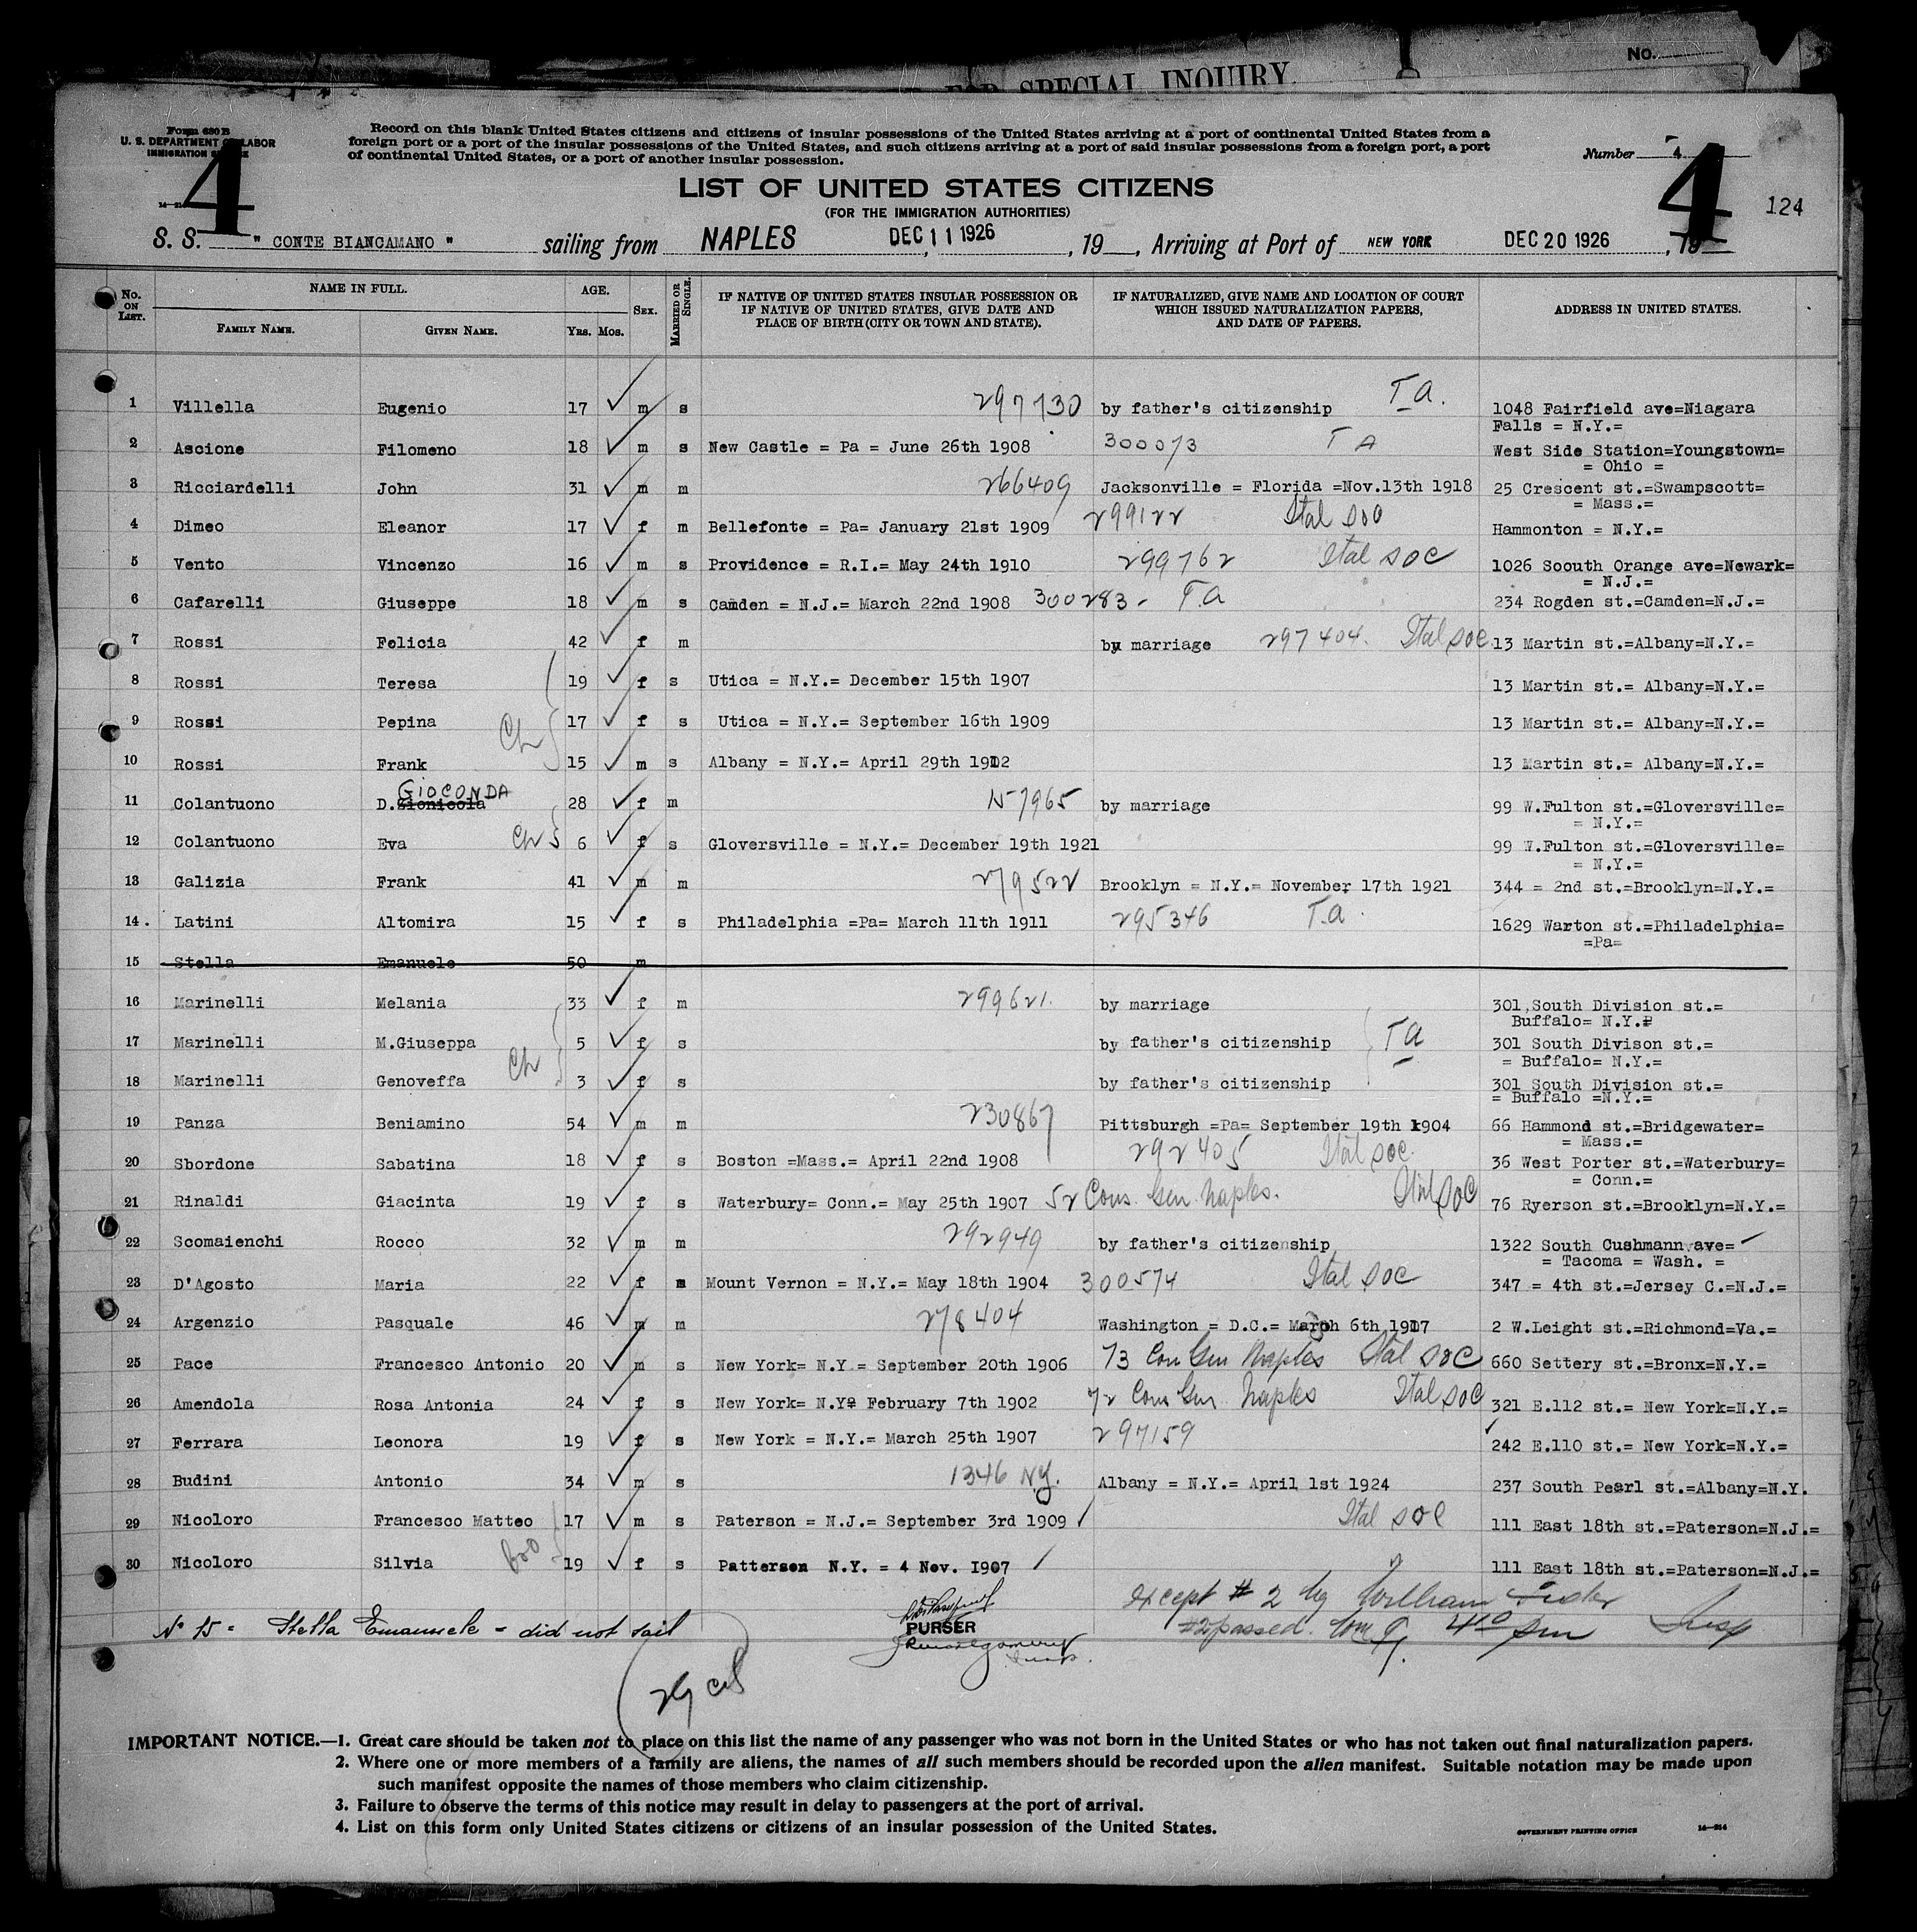 No.
FOR SPECIAL INQUIRY.
Form 630 B
U. S. DEPARTMENT OF LABOR
IMMIGRATION SERVICE
Record on this blank United States citizens and citizens of insular possessions of the United States arriving at a port of continental United States from a
foreign port or a port of the insular possessions of the United States, and such citizens arriving at a port of said insular possessions from a foreign port, a port
of continental United States, or a port of another insular possession.
Number 4
4 4
124
LIST OF UNITED STATES CITIZENS
(FOR THE IMMIGRATION AUTHORITIES)
S. S. " CONTE BIANCAMANO " sailing from NAPLES DEC 11 1926, 19 , Arriving at Port of NEW YORK DEC 20 1926, 19
No. ON LIST. NAME IN FULL. AGE. SEX. MARRIED OR SINGLE. IF NATIVE OF UNITED STATES INSULAR POSSESSION OR IF NATIVE OF UNITED STATES, GIVE DATE AND PLACE OF BIRTH (CITY OR TOWN AND STATE). IF NATURALIZED, GIVE NAME AND LOCATION OF COURT WHICH ISSUED NATURALIZATION PAPERS, AND DATE OF PAPERS. ADDRESS IN UNITED STATES.
FAMILY NAME. GIVEN NAME. YRS. MOS.
1 Villella Eugenio 17 m s 297730 by father's citizenship T.A. 1048 Fairfield ave=Niagara
Falls = N.Y.=
2 Ascione Filomeno 18 m s New Castle = Pa = June 26th 1908 300073 T A West Side Station=Youngstown=
= Ohio =
3 Ricciardelli John 31 m m 266409 Jacksonville = Florida =Nov.13th 1918 25 Crescent st.=Swampscott=
= Mass.=
4 Dimeo Eleanor 17 f m Bellefonte = Pa= January 21st 1909 299122 Ital Soc Hammonton = N.Y.=
5 Vento Vincenzo 16 m s Providence = R.I.= May 24th 1910 299762 Ital SOC 1026 Soouth Orange ave=Newark=
= N.J.=
6 Cafarelli Giuseppe 18 m s Camden = N.J.= March 22nd 1908 300283 - T.A 234 Rogden st.=Camden=N.J.=
7 Rossi Felicia 42 f m by marriage 297404. Ital SOC. 13 Martin st.=Albany=N.Y.=
8 Rossi Teresa 19 f s Utica = N.Y.= December 15th 1907 13 Martin st.= Albany=N.Y.=
9 Rossi Pepina Ch 17 f s Utica = N.Y.= September 16th 1909 13 Martin st.= Albany=N.Y.=
10 Rossi Frank 15 m s Albany = N.Y.= April 29th 1912 13 Martin st.= Albany=N.Y.=
GIOCONDA
11 Colantuono D. 28 f m 157965 by marriage 99 W.Fulton st.=Gloversville=
= N.Y.=
12 Colantuono Eva Ch 6 f s Gloversville = N.Y.= December 19th 1921 99 W.Fulton st.=Gloversville=
= N.Y.=
13 Galizia Frank 41 m m 279522 Brooklyn = N.Y.= November 17th 1921 344 = 2nd st.=Brooklyn=N.Y.=
14. Latini Altomira 15 f s Philadelphia =Pa= March 11th 1911 295346 T.A. 1629 Warton st.=Philadelphia=
=Pa=
15 Stella Emanuele 50 m
16 Marinelli Melania 33 f m 299621. by marriage 301 South Division st.=
Buffalo= N.Y.=
17 Marinelli M.Giuseppa Ch 5 f s by father's citizenship TA 301 South Divison st.=
= Buffalo= N.Y.=
18 Marinelli Genoveffa 3 f s by father's citizenship 301 South Division st.=
= Buffalo =N.Y.=
19 Panza Beniamino 54 m m 230867 Pittsburgh =Pa= September 19th 1904 66 Hammond st.=Bridgewater=
= Mass.=
20 Sbordone Sabatina 18 f s Boston =Mass.= April 22nd 1908 292405 Ital soc. 36 West Porter st.=Waterbury=
= Conn.=
21 Rinaldi Giacinta 19 f s Waterbury= Conn.= May 25th 1907 52 Cons. Gen. Naples. Ital SOC 76 Ryerson st.=Brooklyn=N.Y.=
22 Scomaienchi Rocco 32 m m 292949 by father's citizenship 1322 South Cushmann ave=
= Tacoma = Wash. =
23 D'Agosto Maria 22 f m Mount Vernon = N.Y.= May 18th 1904 300574 Ital SOC 347 = 4th st.=Jersey C.=N.J.=
24 Argenzio Pasquale 46 m m 278404 Washington = D.C.= March 6th 1917 2 W.Leight st.=Richmond=Va.=
25 Pace Francesco Antonio 20 m s New York= N.Y = September 20th 1906 73 Con Gen Naples Ital SOC 660 Settery st.=Bronx=N.Y.=
26 Amendola Rosa Antonia 24 f s New York= N.Y= February 7th 1902 72 Cons Gen Naples Ital SOC 321 E.112 st.= New York=N.Y.=
27 Ferrara Leonora 19 f s New York = N.Y.= March 25th 1907 297159 242 E.110 st.= New York=N.Y.=
28 Budini Antonio 34 m s 1346 N.Y. Albany = N.Y.= April 1st 1924 237 South Pearl st.=Albany=N.Y.
29 Nicoloro Francesco Matteo 17 m s Paterson = N.J.= September 3rd 1909 Ital SOC 111 East 18th st.=Paterson=N.J.=
30 Nicoloro Silvia bro 19 f s Patterson N.Y. = 4 Nov. 1907 111 East 18th st.=Paterson=N.J.=
Except # 2 by William
No 15 = Stella Emanuele = did not sail PURSER #2 passed. 4 10 pm Insp
Insp.
29 cit
IMPORTANT NOTICE.—1. Great care should be taken not to place on this list the name of any passenger who was not born in the United States or who has not taken out final naturalization papers.
2. Where one or more members of a family are aliens, the names of all such members should be recorded upon the alien manifest. Suitable notation may be made upon
such manifest opposite the names of those members who claim citizenship.
3. Failure to observe the terms of this notice may result in delay to passengers at the port of arrival.
4. List on this form only United States citizens or citizens of an insular possession of the United States.
GOVERNMENT PRINTING OFFICE 14—214